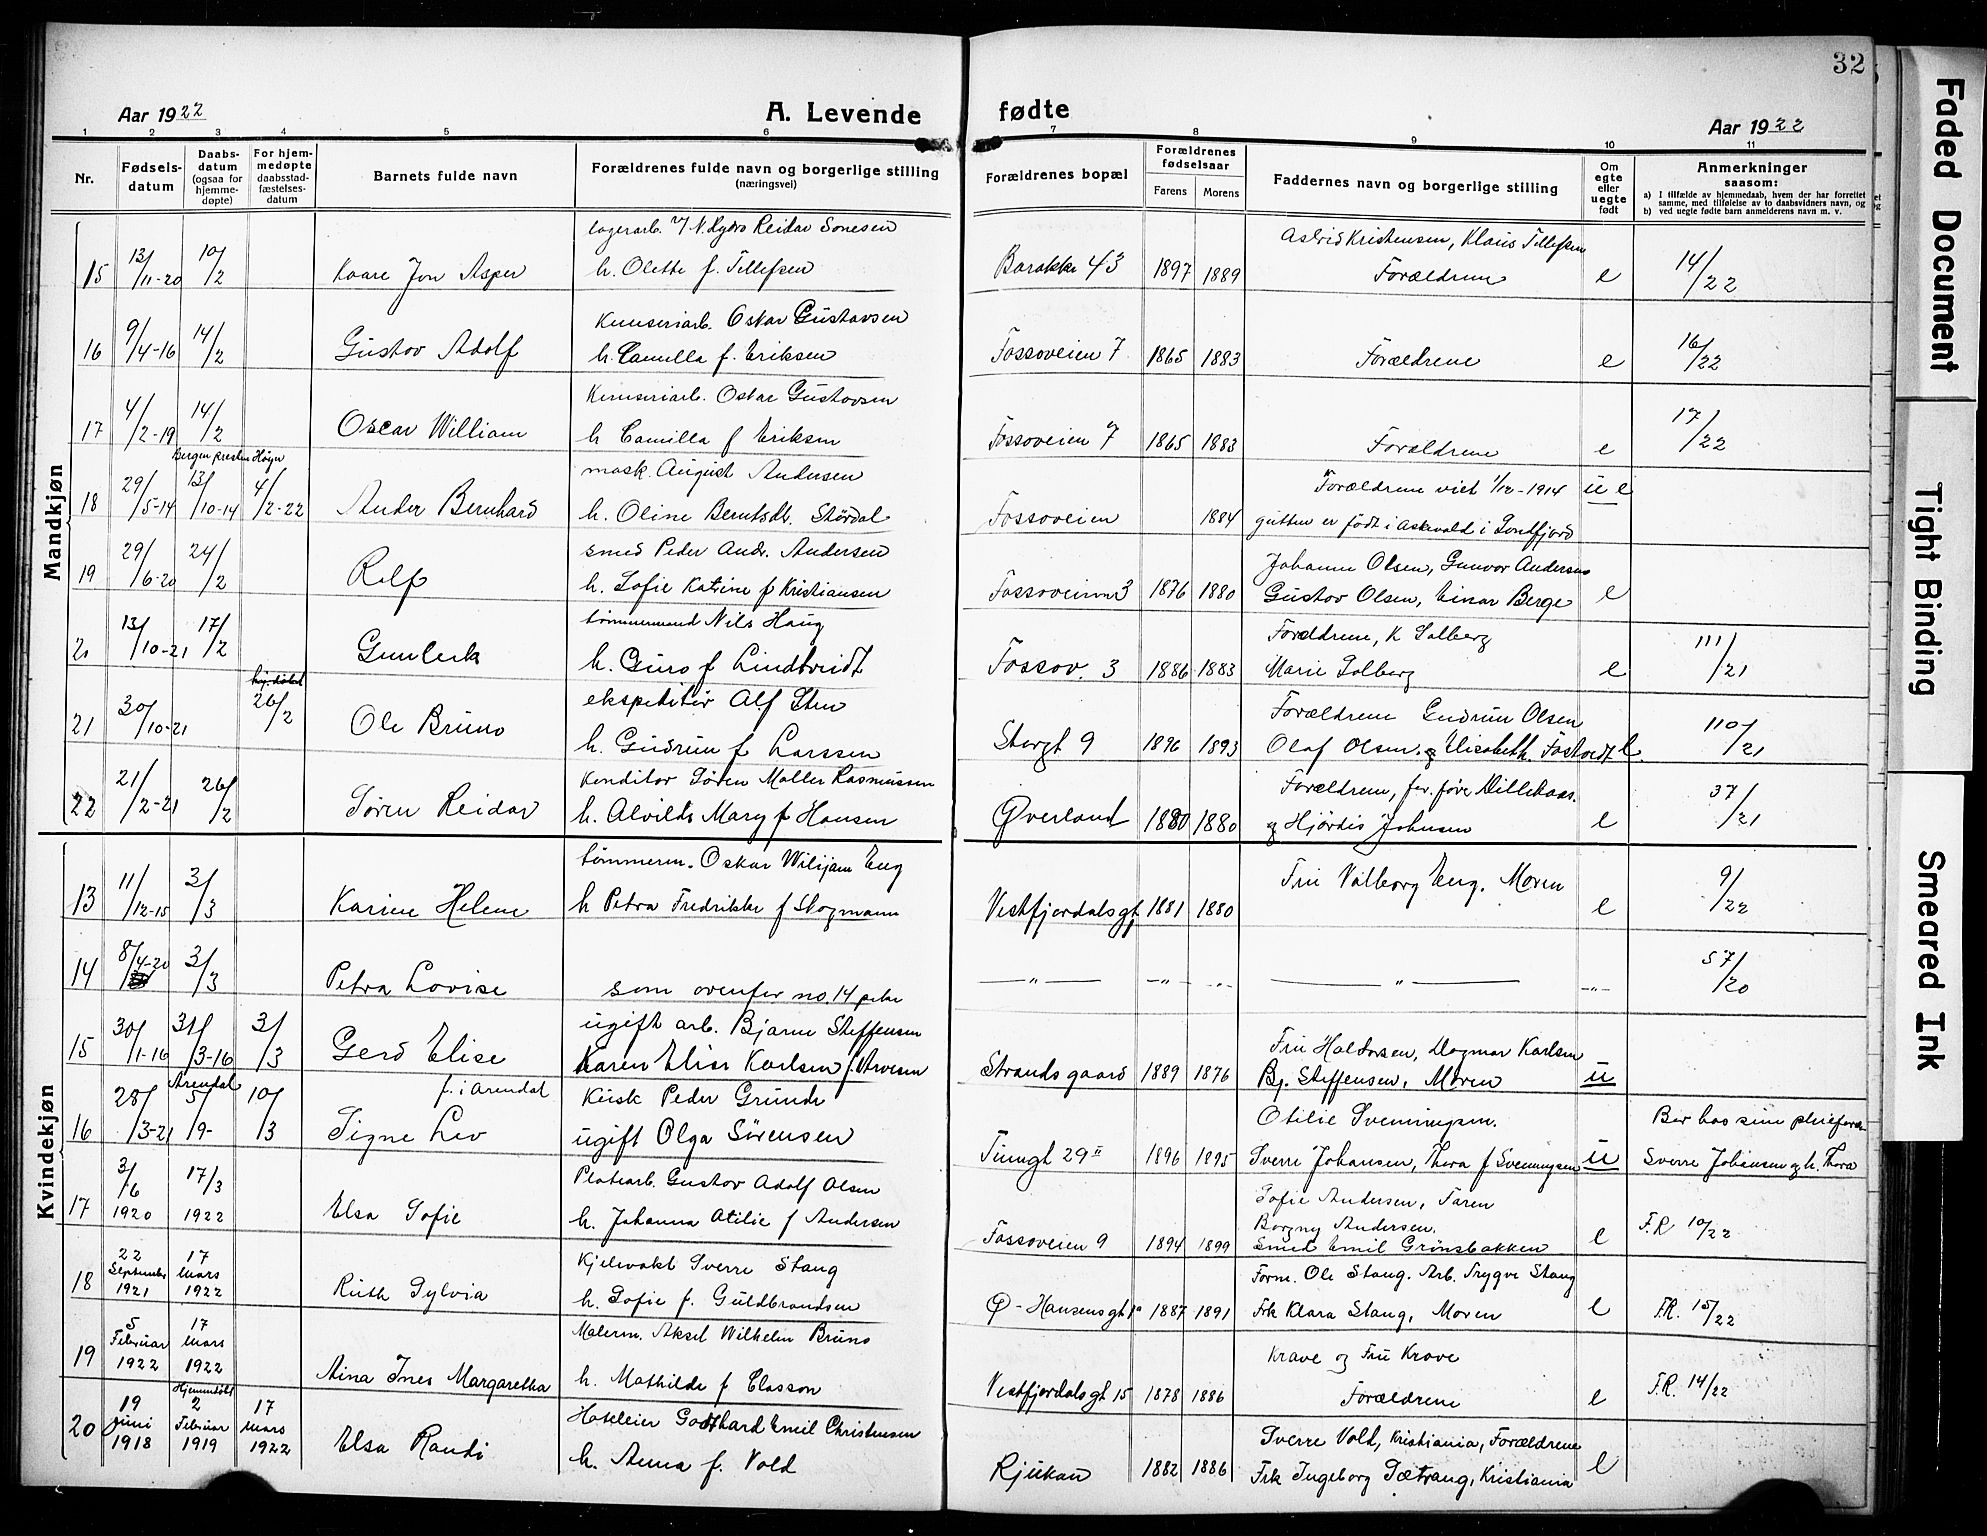 32
Aar 1922
A. Levende
fødte
Aar 1922
1 2 3 4 5 6 7 8 9 10 11
Nr.
Fødsels-
datum
Daabs-
datum
(ogsaa for
hjemme-
døpte)
For hjem-
medøpte
daabsstad-
fæstelses-
datum
Barnets fulde navn
Forældrenes fulde navn og borgerlige stilling
(næringsvei)
Forældrenes bopæl
Forældrenes
fødselsaar
Farens Morens
Faddernes navn og borgerlige stilling
Om
egte
eller
uegte
født
Anmerkninger
saasom:
a) I tilfælde av hjemmedaab, hvem der har forrettet
samme, med tilføielse av to daabsvidners navn, og
b) ved uegte fødte barn anmelderens navn m. v.
Mandkjøn
lagerarb. v/ N. Hydro Reidar Sonesen Astrid Kristensen, Klaus Tellefsen
15 13/11-20 10/2 Kaare Jon Asper h. Olette f. Tellefsen Barakke 43 1897 1889 Forældrene e 14/22
Oskar Gustavsen
16 9/4-16 14/2 Gustav Adolf h. Camilla f. Eriksen Fossoveien 7 1865 1883 Forældrene e 16/22
Oskar Gustavsen
17 4/2-19 14/2 Oscar William h Camilla f Eriksen Fossoveien 7 1865 1883 Forældrene e 17/22
Bergen presten Høyn
mask. August Andersen Forældrene viet 1/12-1914
18 29/5-14 13/10-14 4/2-22 Ander Bernhard h. Oline Berntsdt. Stördal Fossoveien 1884 gutten er født i Askevold i Sondfjord u e
smed Peder Andr. Andersen Johanne Olsen, Gunvor Andersen
19 29/6-20 24/2 Rolf h. Sofie Katrine f Kristiansen Fossoveien 3 1876 1880 Gustav Olsen, Einar Berge e
tømmermand Nils Haug Forældrene, K Solberg
20 13/10-21 17/2 h. Guro f Lindtveidt Fossov. 3 1886 1883 Marie Solberg e 111/21
ekspeditör Alf Sten Forældrene Gudrun Olsen
21 30/10-21 26/2 Ole Bruno h. Gudrun f Larssen Storgt 9 1896 1893 Olaf Olsen og Elisabeth e. 110/21
Konditor Søren Møller Rasmussen Forældrene,
22 21/2-21 26/2 Søren Reidar h. Alvilde Mary f Hansen Øverland 1880 1880 og Hjördis Johnsen e 37/21
Kvindekjøn
tömmerm. Oskar Wiljam Eng Fru Valborg Eng. Moren
13 11/12-15 3/3 Karine Helene h Petra Fredrikke f Skogmann Vestfjordalsgt 1881 1880 e 9/22
14 8/4-20 3/3 Petra Lovise som ovenfor no. 14 — „ — — „ — — „ — — „ — — „ — 57/20
ugift arb. Bjarne Steffensen Fru Haldorsen, Dagmar Karlsen
15 30/1-16 31/3-16 3/3 Gerd Elise Karen Elise Karlsen f. Arvesen Strandsgaard 1889 1876 Bj. Steffensen, Moren u
Arendal f. i Arendal Kusk Peder Grunde Otilie Svenningsen. Bor hos sine pleieforæ.
16 28/3-21 5/9- 10/3 Signe Lev ugift Olga Sörensen Tinngt 29 II 1896 1895 Sverre Johansen, Thora f Svenningsen u Sverre Johansen og h. Thora
Platearb. Gustav Adolf Olsen Sofie Andersen,
17 3/6 1920 17/3 1922 Elsa Sofie h. Johanna Otilie f Andersen Borgny Andersen.
Fossoveien 9 1894 1899 Smed Emil Grønsbakken e F.R 10/22
Kjelevakt Sverre Stang Form. Ole Stang. Arb. Trygve Stang
18 22 September 1921 17 Mars 1922 Ruth Sylvia h. Sofie f. Guldbrandsen Ø-Hansensgt 1a 1887 1891 Frk Klara Stang, Moren e F.R. 15/22
Malerm. Aksel Wilhelm Bruno Krave og Fru Krave
19 5 Februar 1922 17 Mars 1922 Aina Ines Margaretha h. Mathilde f Classon Vestfjordalsgt 15 1878 1886 Forældrene e F.R. 14/22
Hjemmdöbt Hoteleier Godthard Emil Christensen Sverre Vold, Kristiania, Forældrene
20 19 Juni 1918 2 Februar 1919 17 Mars 1922 Elsa Randi h. Anna f. Vold Rjukan 1882 1886 Frk Ingeborg Sætrang, Kristiania e
Faded Document
Tight Binding
Smeared Ink